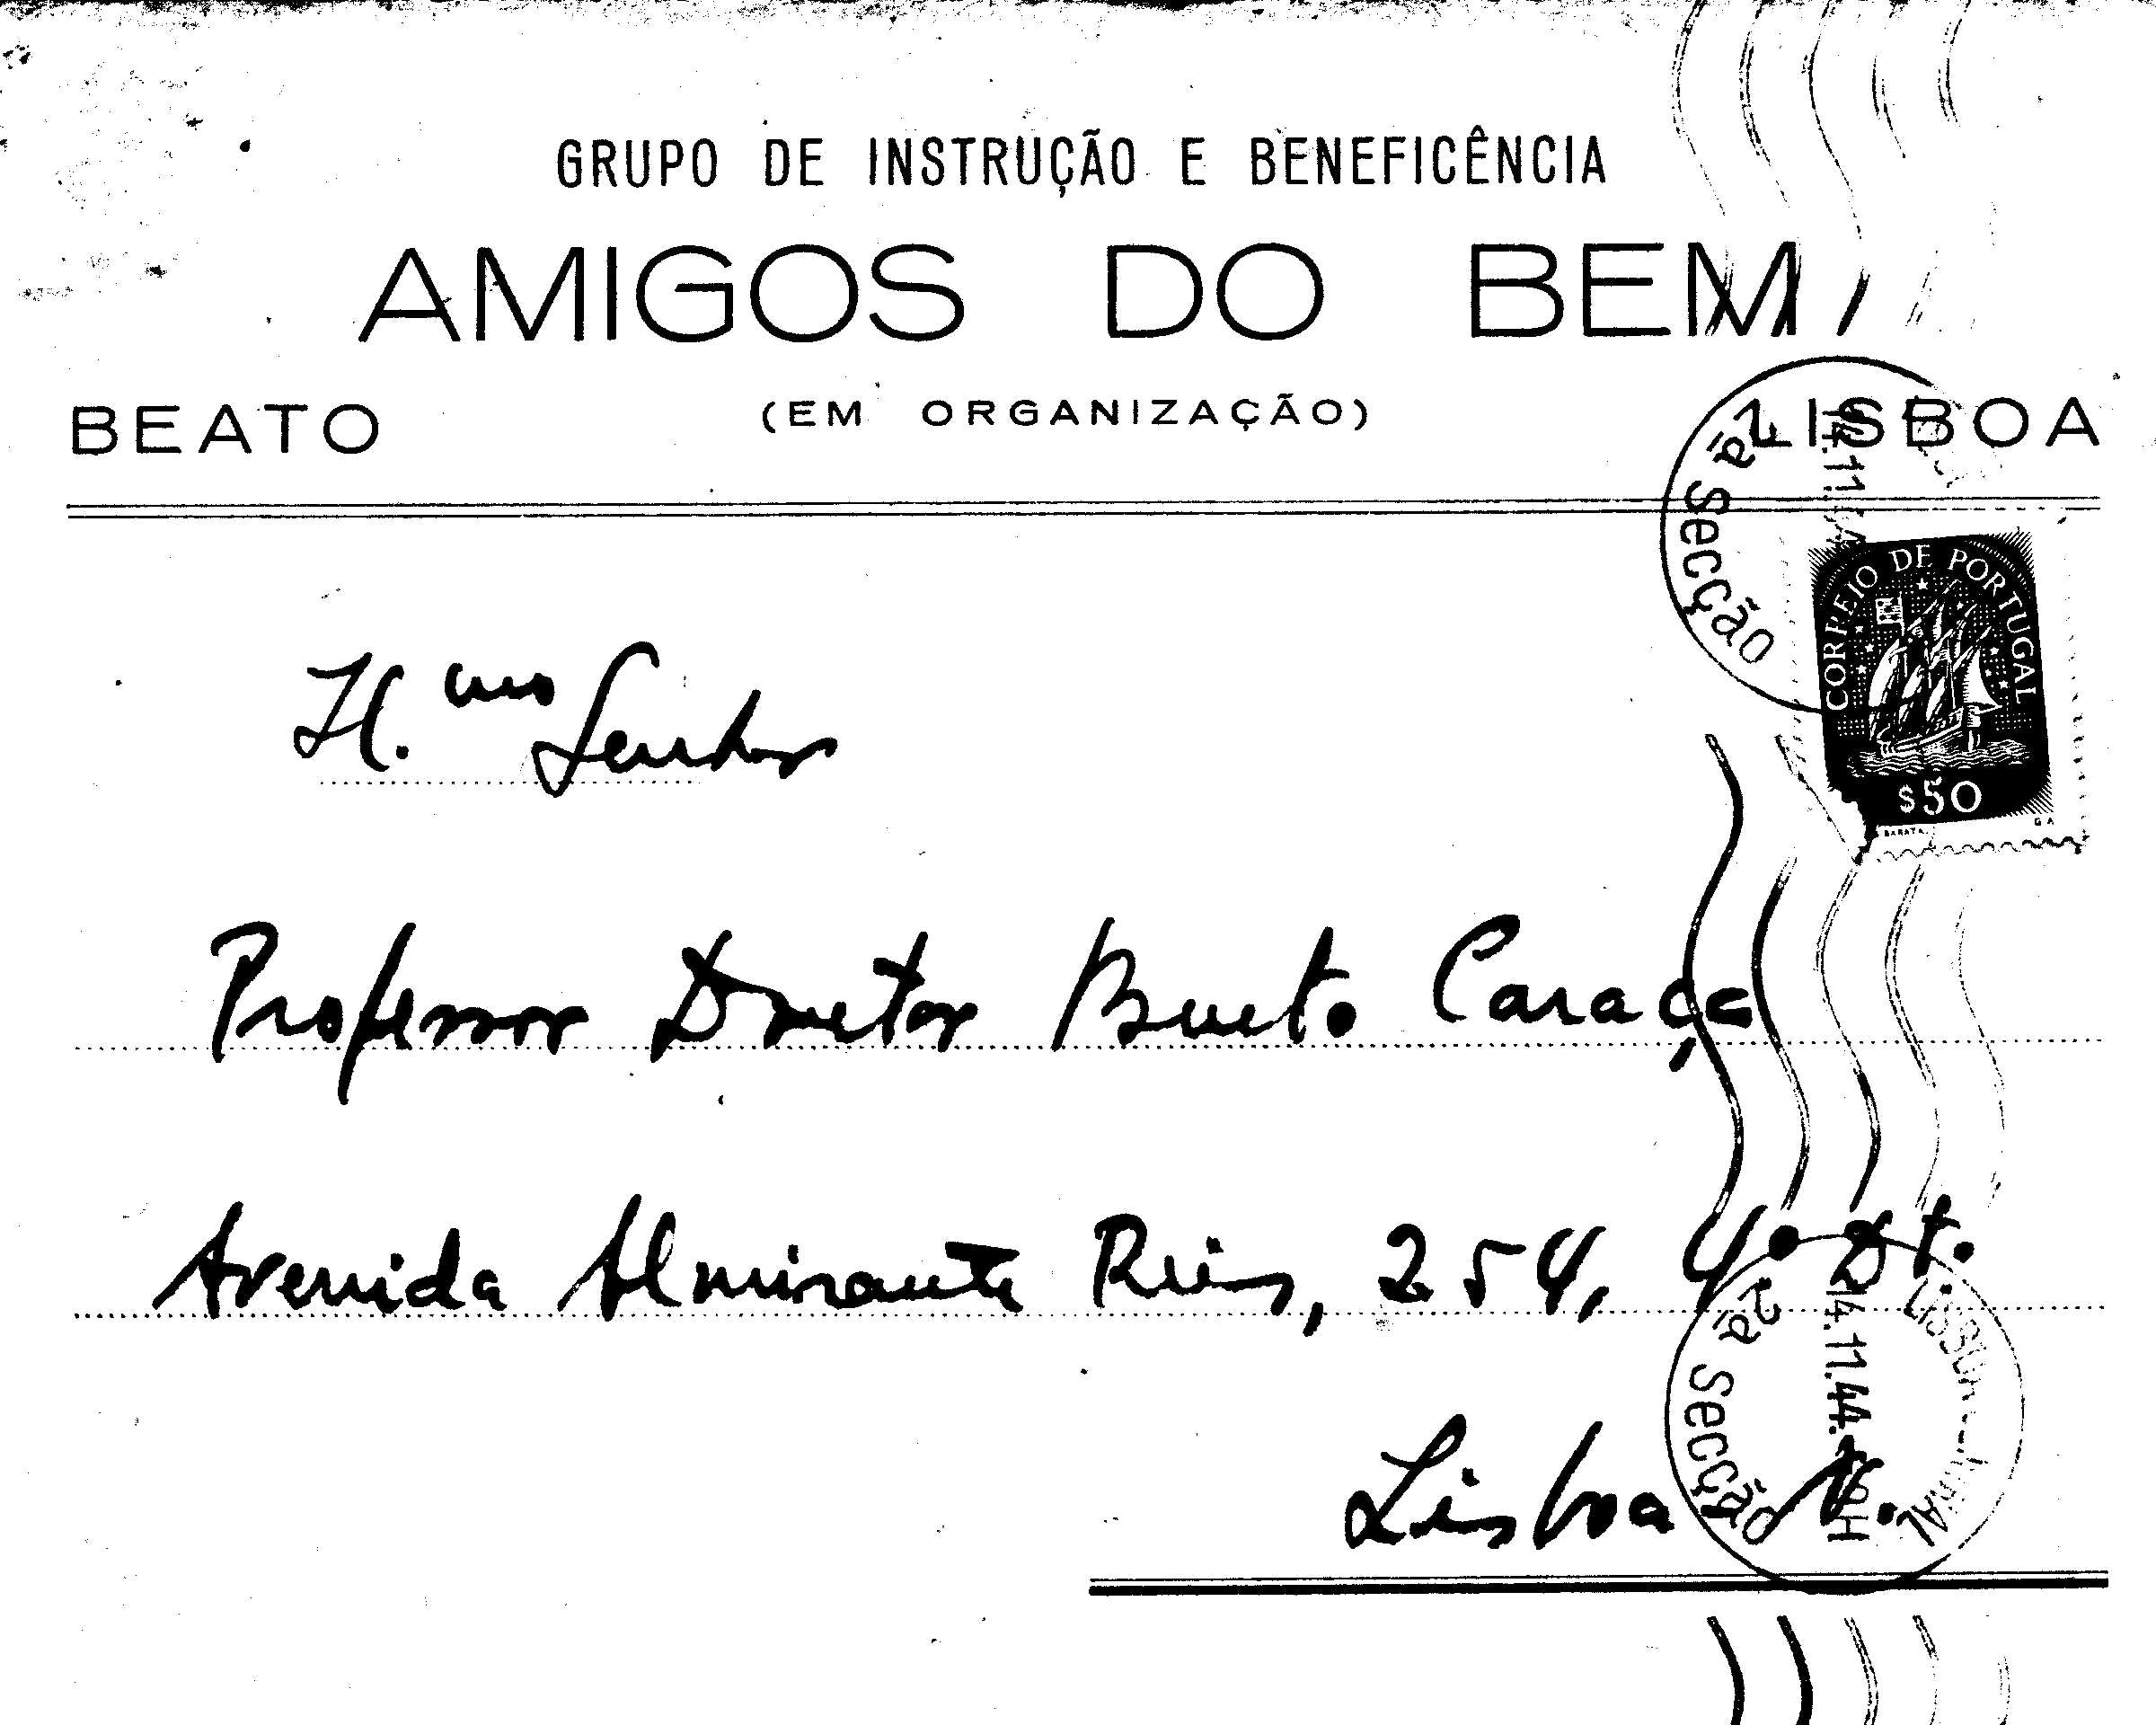 GRUPO DE INSTRUÇÃO E BENEFICÊNCIA
AMIGOS DO BEM
BEATO (EM ORGANIZAÇÃO) LISBOA
2ª Secção
14.11.44
CORREIO DE PORTUGAL
$50
BARATA. G A
Il.mo Senhor
Professor Doutor Bento Caraça
Avenida Almirante Reis, 254, 4º Dt.
2ª Secção 14.11.44.
Lisboa N.